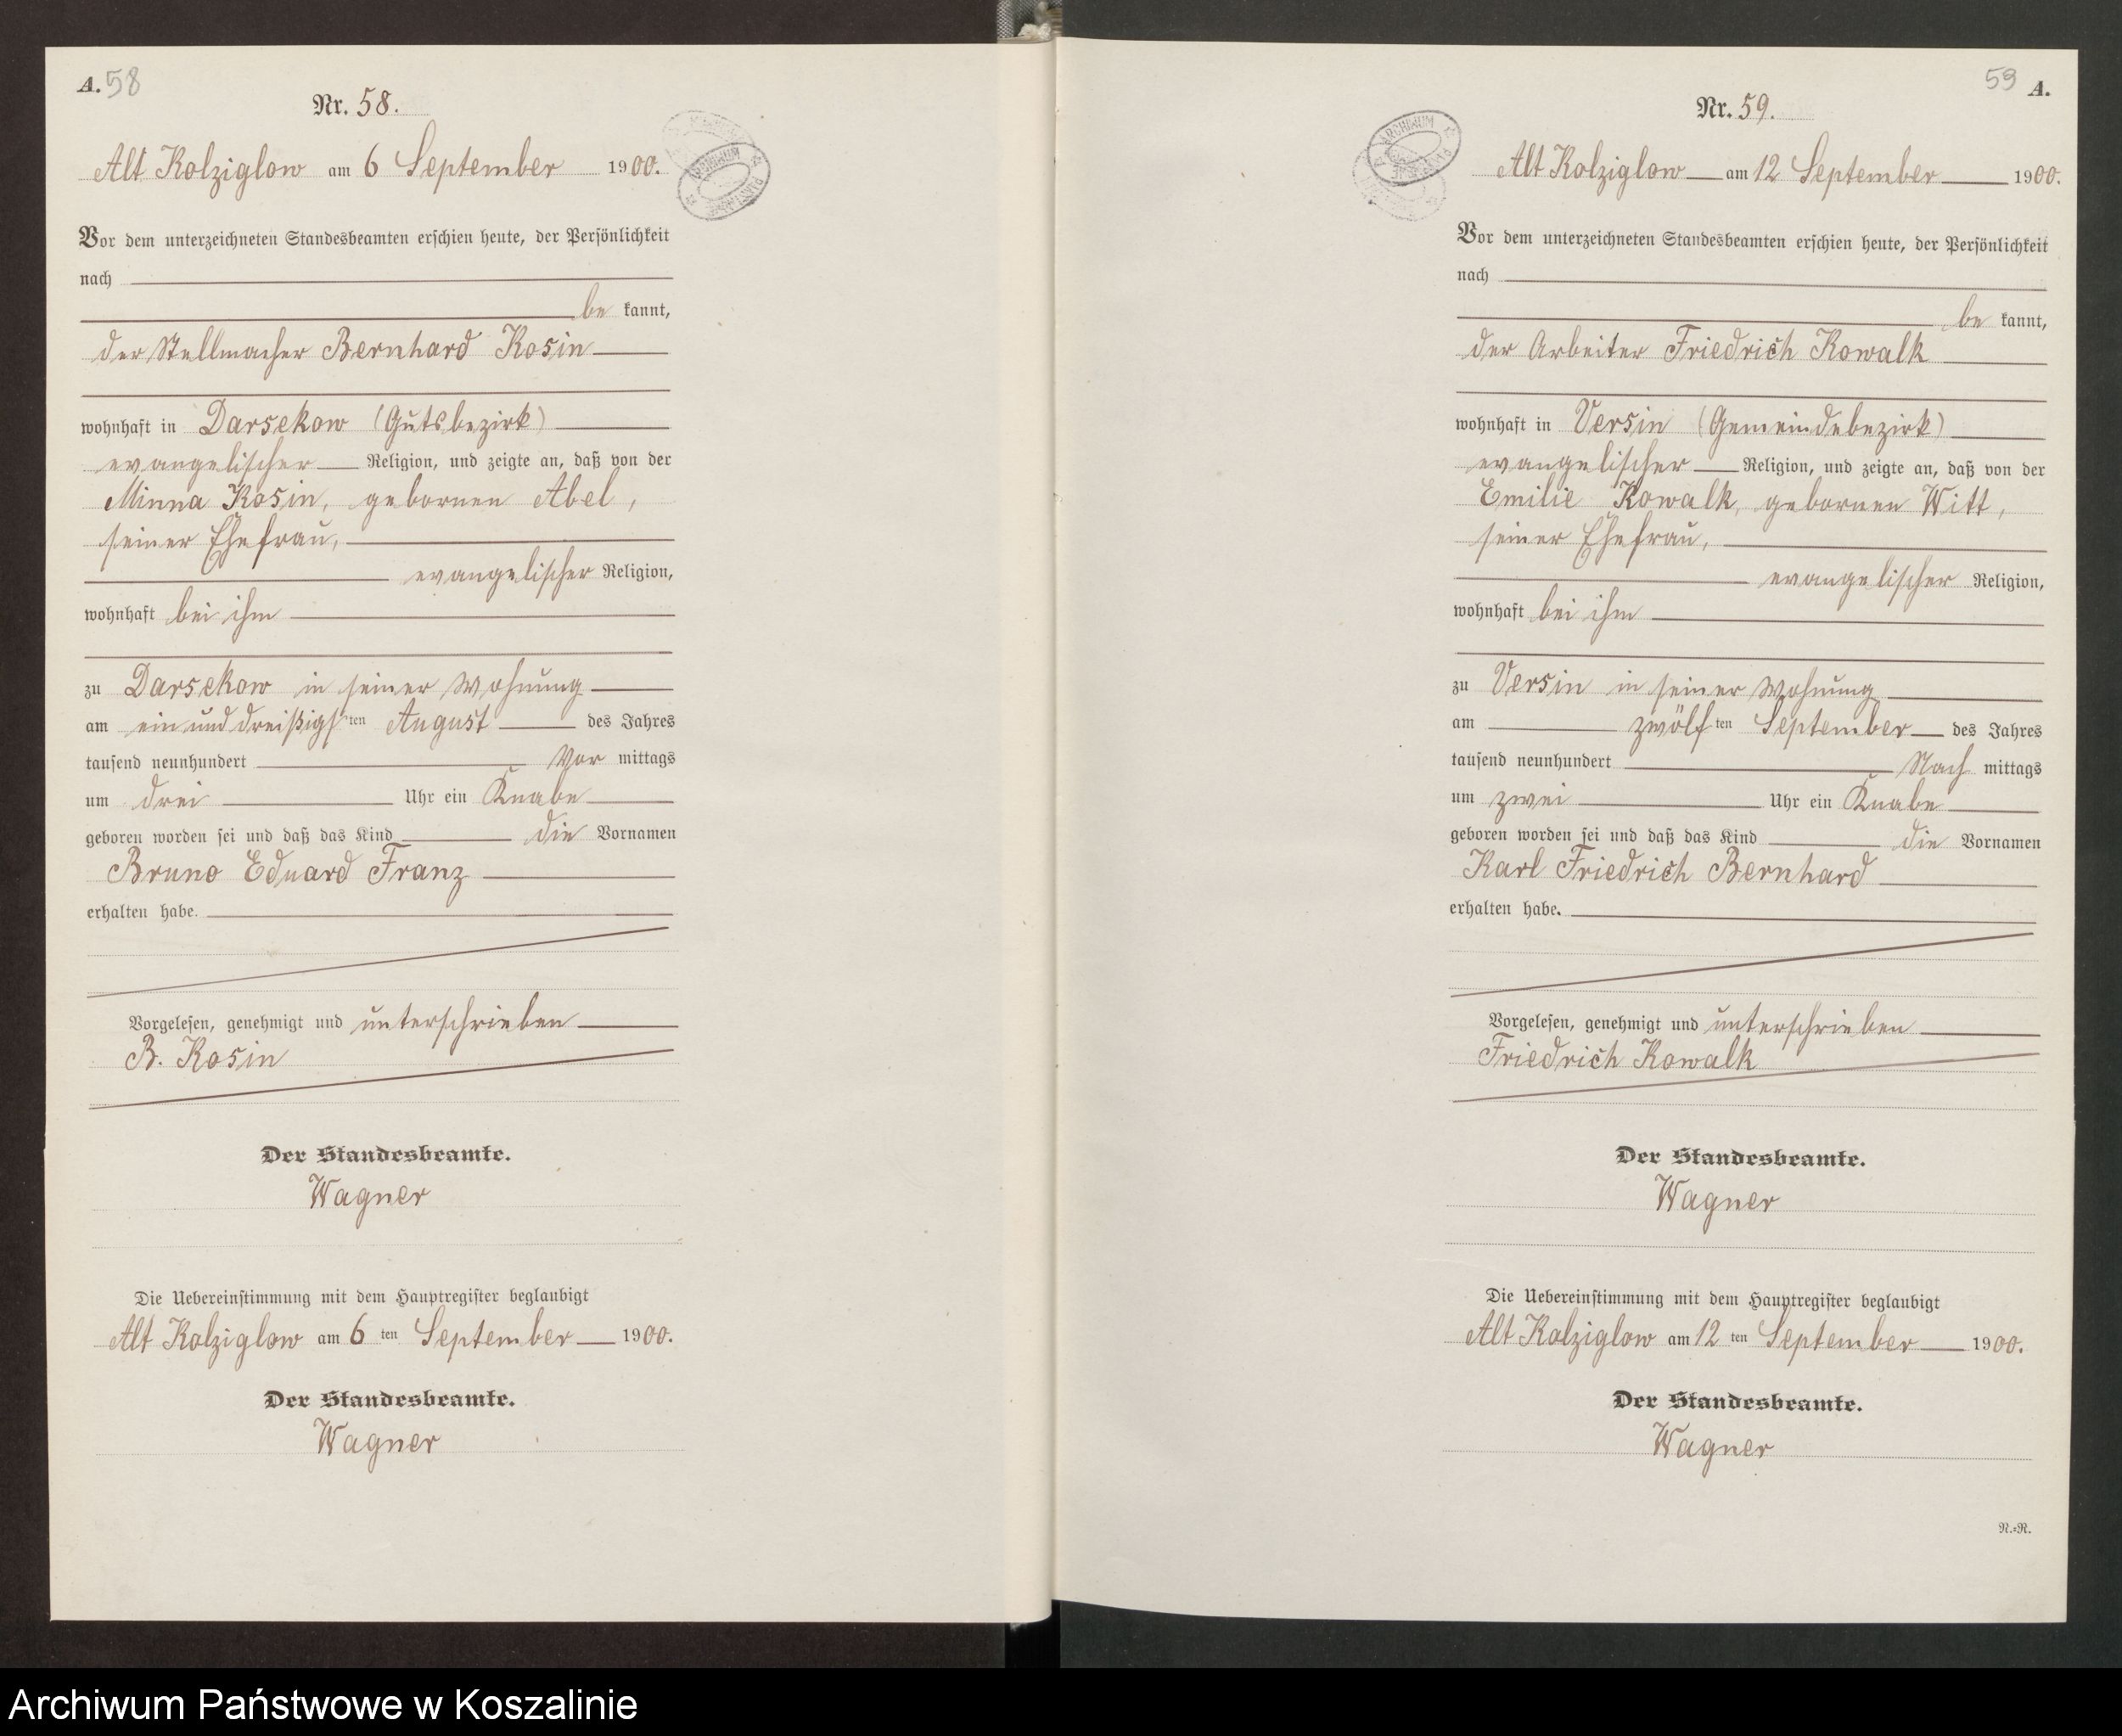 A. 58
Nr. 58.
Alt Kolziglow am 6 September 1900.
Vor dem unterzeichneten Standesbeamten erschien heute, der Persönlichkeit
nach
be kannt,
der Stellmacher Bernhard Kosin
wohnhaft in Darsekow (Gutsbezirk)
evangelischer Religion, und zeigte an, daß von der
Minna Kosin, gebornen Abel,
seiner Ehefrau,
evangelischer Religion,
wohnhaft bei ihm
zu Darsekow in seiner Wohnung
am ein und dreißigsten August des Jahres
tausend neunhundert Vor mittags
um drei Uhr ein Knabe
geboren worden sei und daß das Kind die Vornamen
Bruno Eduard Franz
erhalten habe.
Vorgelesen, genehmigt und unterschrieben
B. Kosin
Der Standesbeamte.
Wagner
Die Uebereinstimmung mit dem Hauptregister beglaubigt
Alt Kolziglow am 6 ten September 1900.
Der Standesbeamte.
Wagner
ARCHIWUM
59 A.
Nr. 59.
ARCHIWUM
Alt Kolziglow am 12 September 1900.
Vor dem unterzeichneten Standesbeamten erschien heute, der Persönlichkeit
nach
be kannt,
der Arbeiter Friedrich Kowalk
wohnhaft in Versin (Gemeindebezirk)
evangelischer Religion, und zeigte an, daß von der
Emilie Kowalk, gebornen Witt,
seiner Ehefrau,
evangelischer Religion,
wohnhaft bei ihm
zu Versin in seiner Wohnung
am zwölf ten September des Jahres
tausend neunhundert Nach mittags
um zwei Uhr ein Knabe
geboren worden sei und daß das Kind die Vornamen
Karl Friedrich Bernhard
erhalten habe.
Vorgelesen, genehmigt und unterschrieben
Friedrich Kowalk
Der Standesbeamte.
Wagner
Die Uebereinstimmung mit dem Hauptregister beglaubigt
Alt Kolziglow am 12 ten September 1900.
Der Standesbeamte.
Wagner
N.=R.
Archiwum Państwowe w Koszalinie